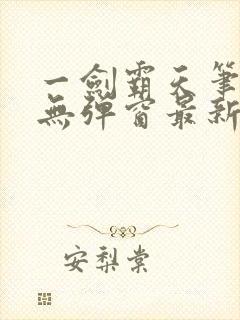 一劍霸天筆
無彈窗最新
安梨棠